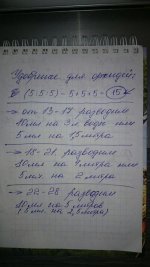 Удобрение для орхидей:
(5:5:5) - 5+5+5 = 15
→ от 13-17 разводим
10мл на 3л воды или
5 мл на 1,5 литра
→ 18-21 разводим
10мл на 4 литра или
5 мл на 2 литра
→ 22-28 разводим
10мл на 5 литров
(5 мл на 2,5 литра)